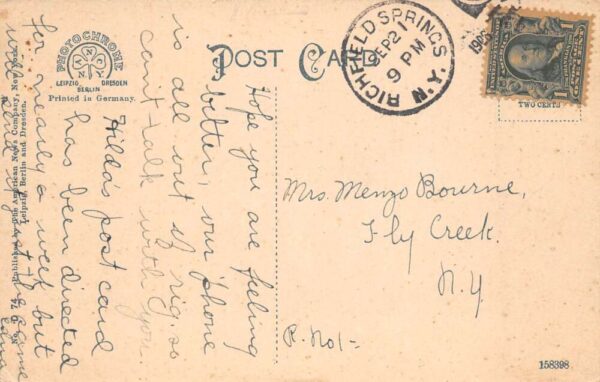 POST CARD
PHOTOCHROME
ANCO
LEIPZIG DRESDEN
BERLIN
Printed in Germany.
RICHFIELD SPRINGS
SEP 2
9 PM
N.Y.
190
1
TWO CENTS
Mrs. Menzo Bourne,
Fly Creek.
N.Y
R. No 1-
Hope you are feeling
better, our 'phone
is all out of rig. so
can't talk with you.
Hilda's post card
has been directed
for nearly a week but
will send it
Published by The American News Company, New York,
Leipzig, Berlin and Dresden.
158398